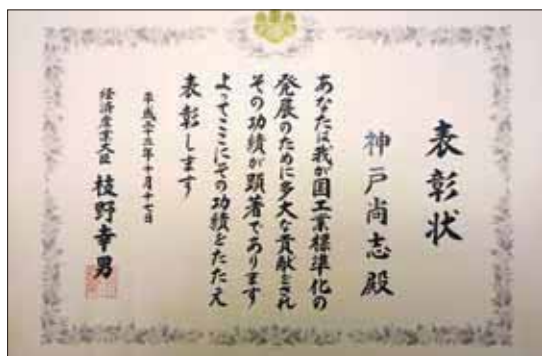 表彰状
神戸尚志殿
あなたは我が国工業標準化の
発展のために多大な貢献をされ
その功績が顕著であります
よってここにその功績をたたえ
表彰します
平成二十三年十月十七日
経済産業大臣 枝野幸男